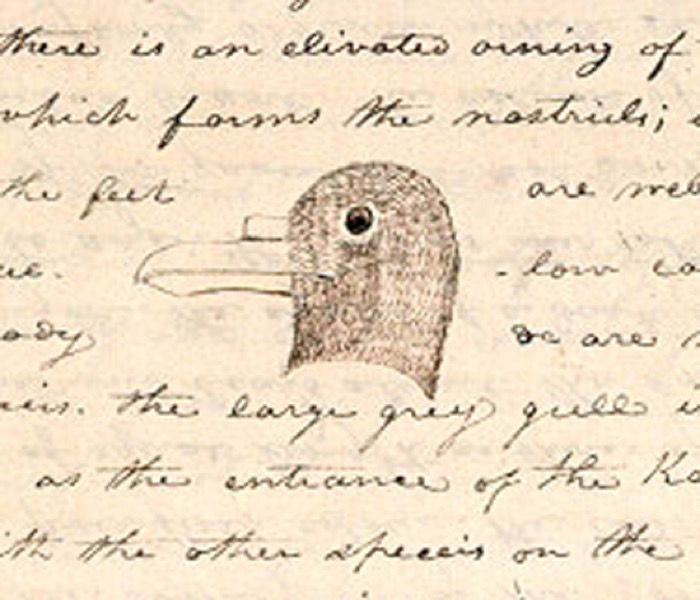 there is an elivated orning of
which forms the nostrils;
the feet are
low
are
the large grey gull
as the entrance of the
the other speceis on the